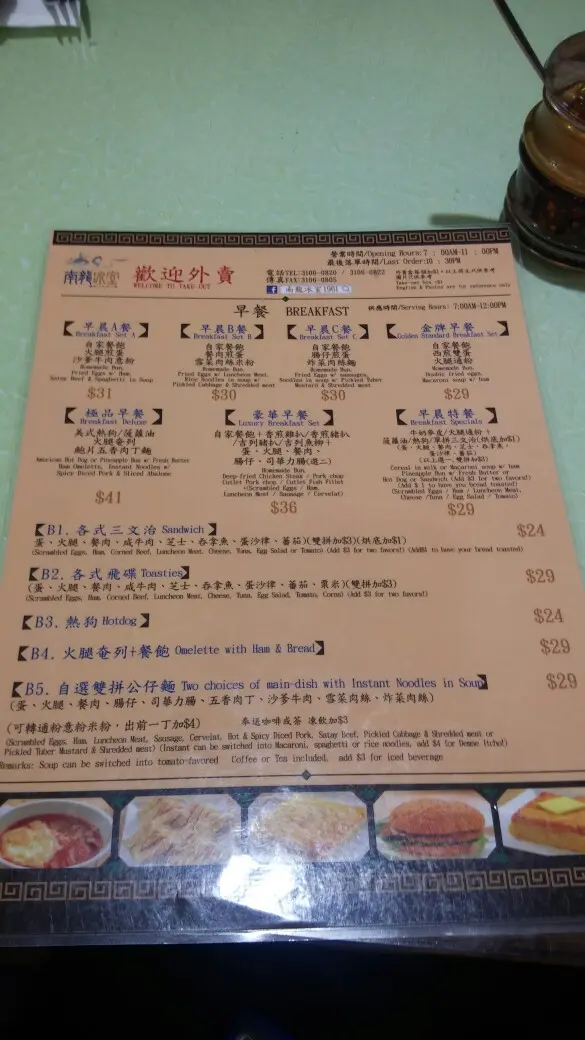 營業時間/Opening Hours:7 : 00AM-11 : 00PM
最後落單時間/Last Order:10 : 30PM
南龍冰室
歡迎外賣
WELCOME TO TAKE OUT
電話TEL:3106-0820 / 3106-0822
傳真FAX:3106-0805
南龍冰室1961
English & Photos are for reference only
早餐 BREAKFAST
供應時間/Serving Hours: 7:00AM-12:00PM
早晨A餐
Breakfast Set A
自家餐飽
火腿煎蛋
沙爹牛肉意粉
Homemade Bun,
Fried Eggs w/ Ham,
Satay Beef & Spaghetti in Soup
$31
早晨B餐
Breakfast Set B
自家餐飽
餐肉煎蛋
雪菜肉絲米粉
Homemade Bun,
Fried Eggs w/ Luncheon Meat,
Rice Noodles in soup w/
Pickled Cabbage & Shredded meat
$30
早晨C餐
Breakfast Set C
自家餐飽
腸仔煎蛋
炸菜肉絲麵
Homemade Bun,
Fried Eggs w/ sausages,
Noodles in soup w/ Pickled Tuber
Mustard & Shredded meat
$30
金牌早餐
Golden Standard Breakfast Set
自家餐飽
西煎雙蛋
火腿通粉
Homemade Bun,
Double fried eggs,
Macaroni soup w/ ham
$29
極品早餐
Breakfast Deluxe
美式熱狗/菠蘿油
火腿奄列
鮑片五香肉丁麵
American Hot Dog or Pineapple Bun w/ Fresh Butter
Ham Omelette, Instant Noodles w/
Spicy Diced Pork & Sliced Abalone
$41
豪華早餐
Luxury Breakfast Set
自家餐飽+香煎雞扒/香煎豬扒
/吉列豬扒/吉列魚柳+
蛋、火腿、餐肉、
腸仔、司華力腸(選二)
Homemade Bun,
Deep-fried Chicken Steak / Pork chop
Cutlet Pork chop / Cutlet Fish Fillet
+(Scrambled Eggs / Ham,
Luncheon Meat / Sausage / Cervelat)
$36
早晨特餐
Breakfast Specials
牛奶麥皮/火腿通粉、
菠蘿油/熱狗/單拼三文治(烘底加$1)
(蛋、火腿、餐肉、芝士、吞拿魚、
蛋沙律、蕃茄)
(以上選一,雙拼加$3)
Cereal in milk or Macaroni soup w/ ham
Pineapple Bun w/ Fresh Butter or
Hot Dog or Sandwich (Add $3 for two favors)
(Add $ 1 to have you bread toasted)
(Scrambled Eggs / Ham / Luncheon Meat,
Cheese /Tuna / Egg Salad / Tomato)
$29
B1. 各式三文治 Sandwich
$24
(蛋、火腿、餐肉、咸牛肉、芝士、吞拿魚、蛋沙律、蕃茄)(雙拼加$3)(烘底加$1)
(Scrambled Eggs, Ham, Corned Beef, Luncheon Meat, Cheese, Tuna, Egg Salad or Tomato) (Add $3 for two favors!) (Add$1 to have your bread toasted)
B2. 各式飛碟 Toasties
$29
(蛋、火腿、餐肉、咸牛肉、芝士、吞拿魚、蛋沙律、蕃茄、粟米)(雙拼加$3)
(Scrambled Eggs, Ham, Corned Beef, Luncheon Meat, Cheese, Tuna, Egg Salad, Tomato, Corns) (Add $3 for two favors!)
B3. 熱狗 Hotdog
$24
B4. 火腿奄列+餐飽 Omelette with Ham & Bread
$29
B5. 自選雙拼公仔麵 Two choices of main-dish with Instant Noodles in Soup
$29
(蛋、火腿、餐肉、腸仔、司華力腸、五香肉丁、沙爹牛肉、雪菜肉絲、炸菜肉絲)
(可轉通粉意粉米粉，出前一丁加$4)
奉送咖啡或茶 凍飲加$3
(Scrambled Eggs, Ham, Luncheon Meat, Sausage, Cervelat, Hot & Spicy Diced Pork, Satay Beef, Pickled Cabbage & Shredded meat or
Pickled Tuber Mustard & Shredded meat) (Instant can be switched into Macaroni, spaghetti or rice noodles, add $4 for Demae Itcho!)
Remarks: Soup can be switched into tomato-favored Coffee or Tea included, add $3 for iced beverage